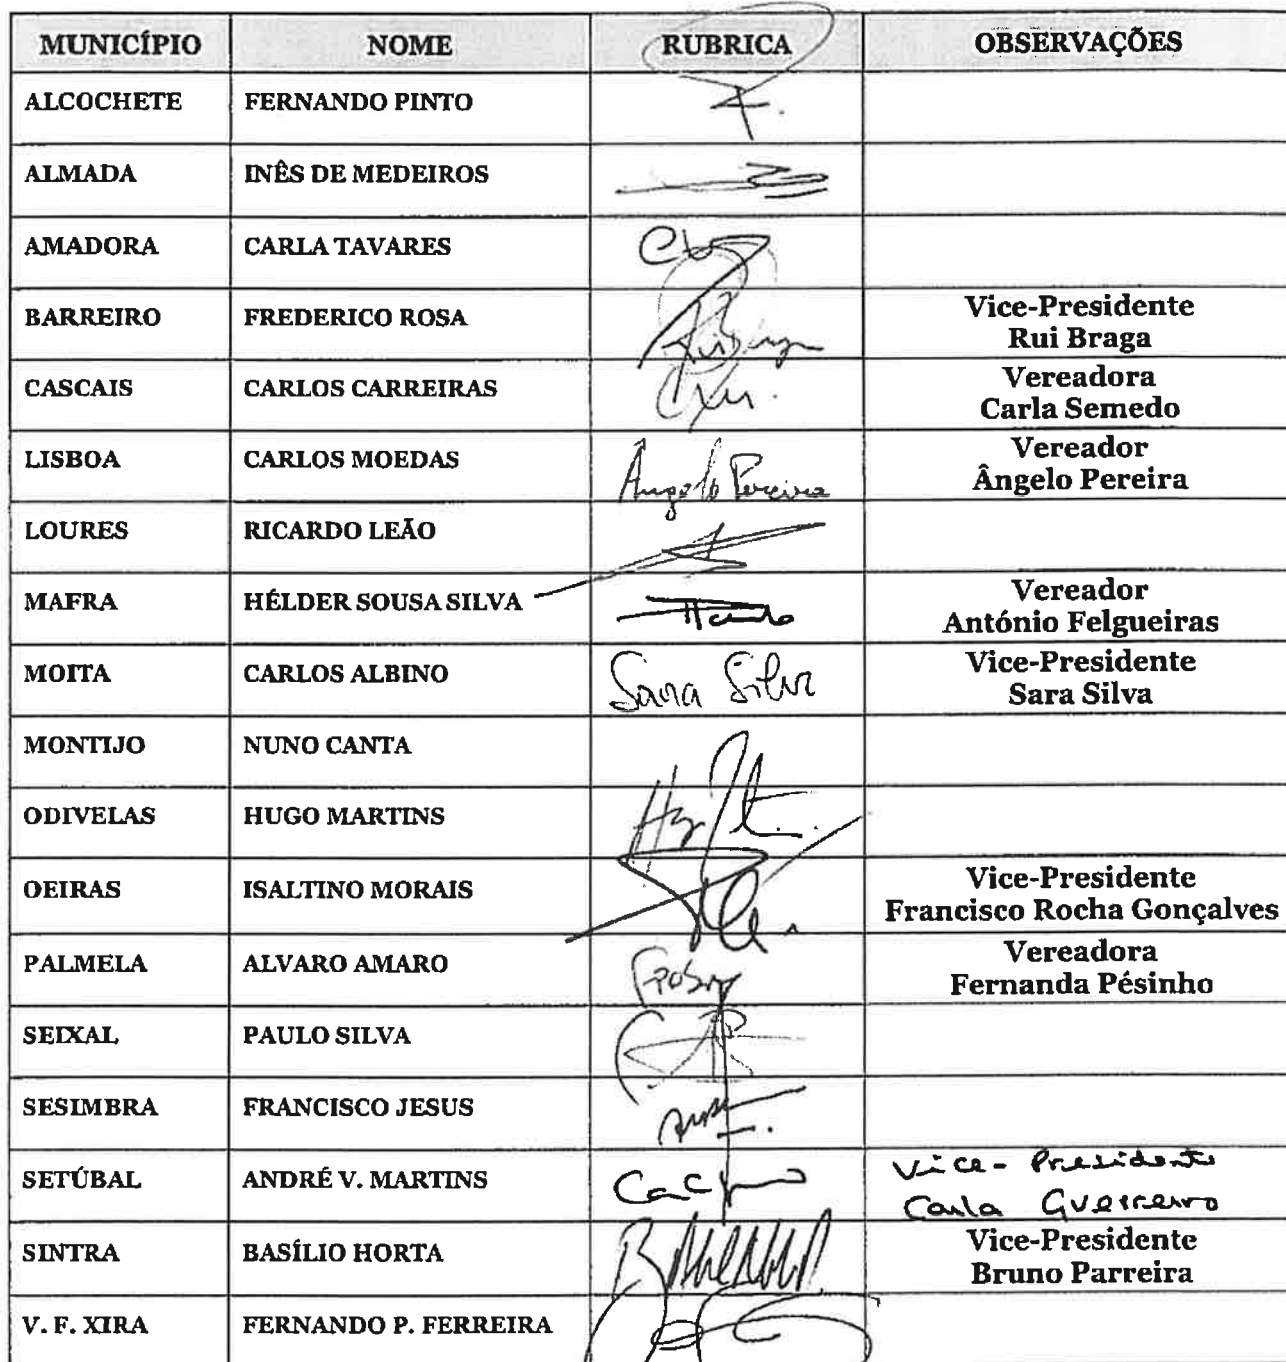 MUNICÍPIO NOME RUBRICA OBSERVAÇÕES
ALCOCHETE FERNANDO PINTO
ALMADA INÊS DE MEDEIROS
AMADORA CARLA TAVARES
BARREIRO FREDERICO ROSA Vice-Presidente
Rui Braga
CASCAIS CARLOS CARREIRAS Vereadora
Carla Semedo
LISBOA CARLOS MOEDAS Angelo Pereira Vereador
Ângelo Pereira
LOURES RICARDO LEÃO
MAFRA HÉLDER SOUSA SILVA Vereador
António Felgueiras
MOITA CARLOS ALBINO Sara Silva Vice-Presidente
Sara Silva
MONTIJO NUNO CANTA
ODIVELAS HUGO MARTINS
OEIRAS ISALTINO MORAIS Vice-Presidente
Francisco Rocha Gonçalves
PALMELA ALVARO AMARO Vereadora
Fernanda Pésinho
SEIXAL PAULO SILVA
SESIMBRA FRANCISCO JESUS
SETÚBAL ANDRÉ V. MARTINS Vice-Presidente
Carla Guerreiro
SINTRA BASÍLIO HORTA Vice-Presidente
Bruno Parreira
V. F. XIRA FERNANDO P. FERREIRA